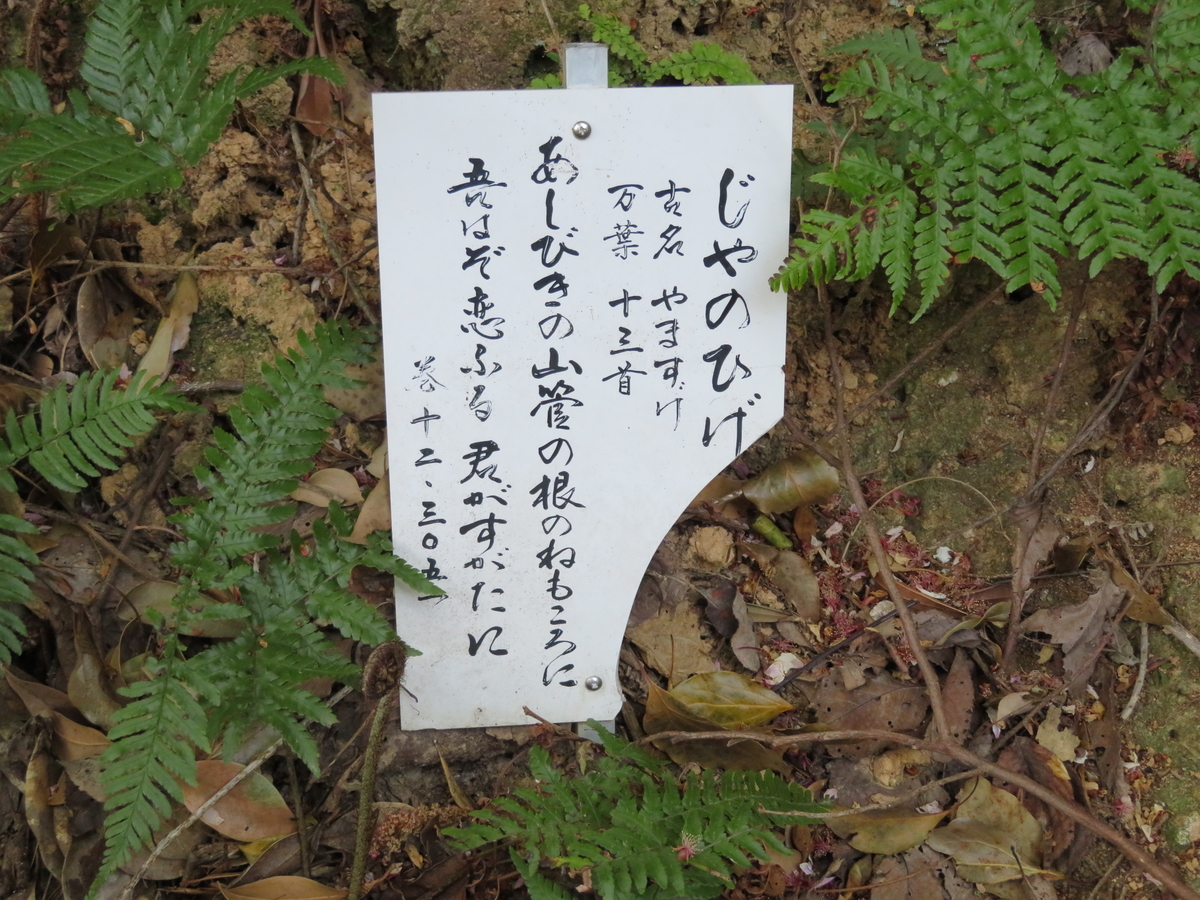 じやのひげ
古名 やますげ
万葉 十三首
あしびきの山管の根のねもころに
吾はぞ恋ふる 君がすがたに
巻十二、三〇五一